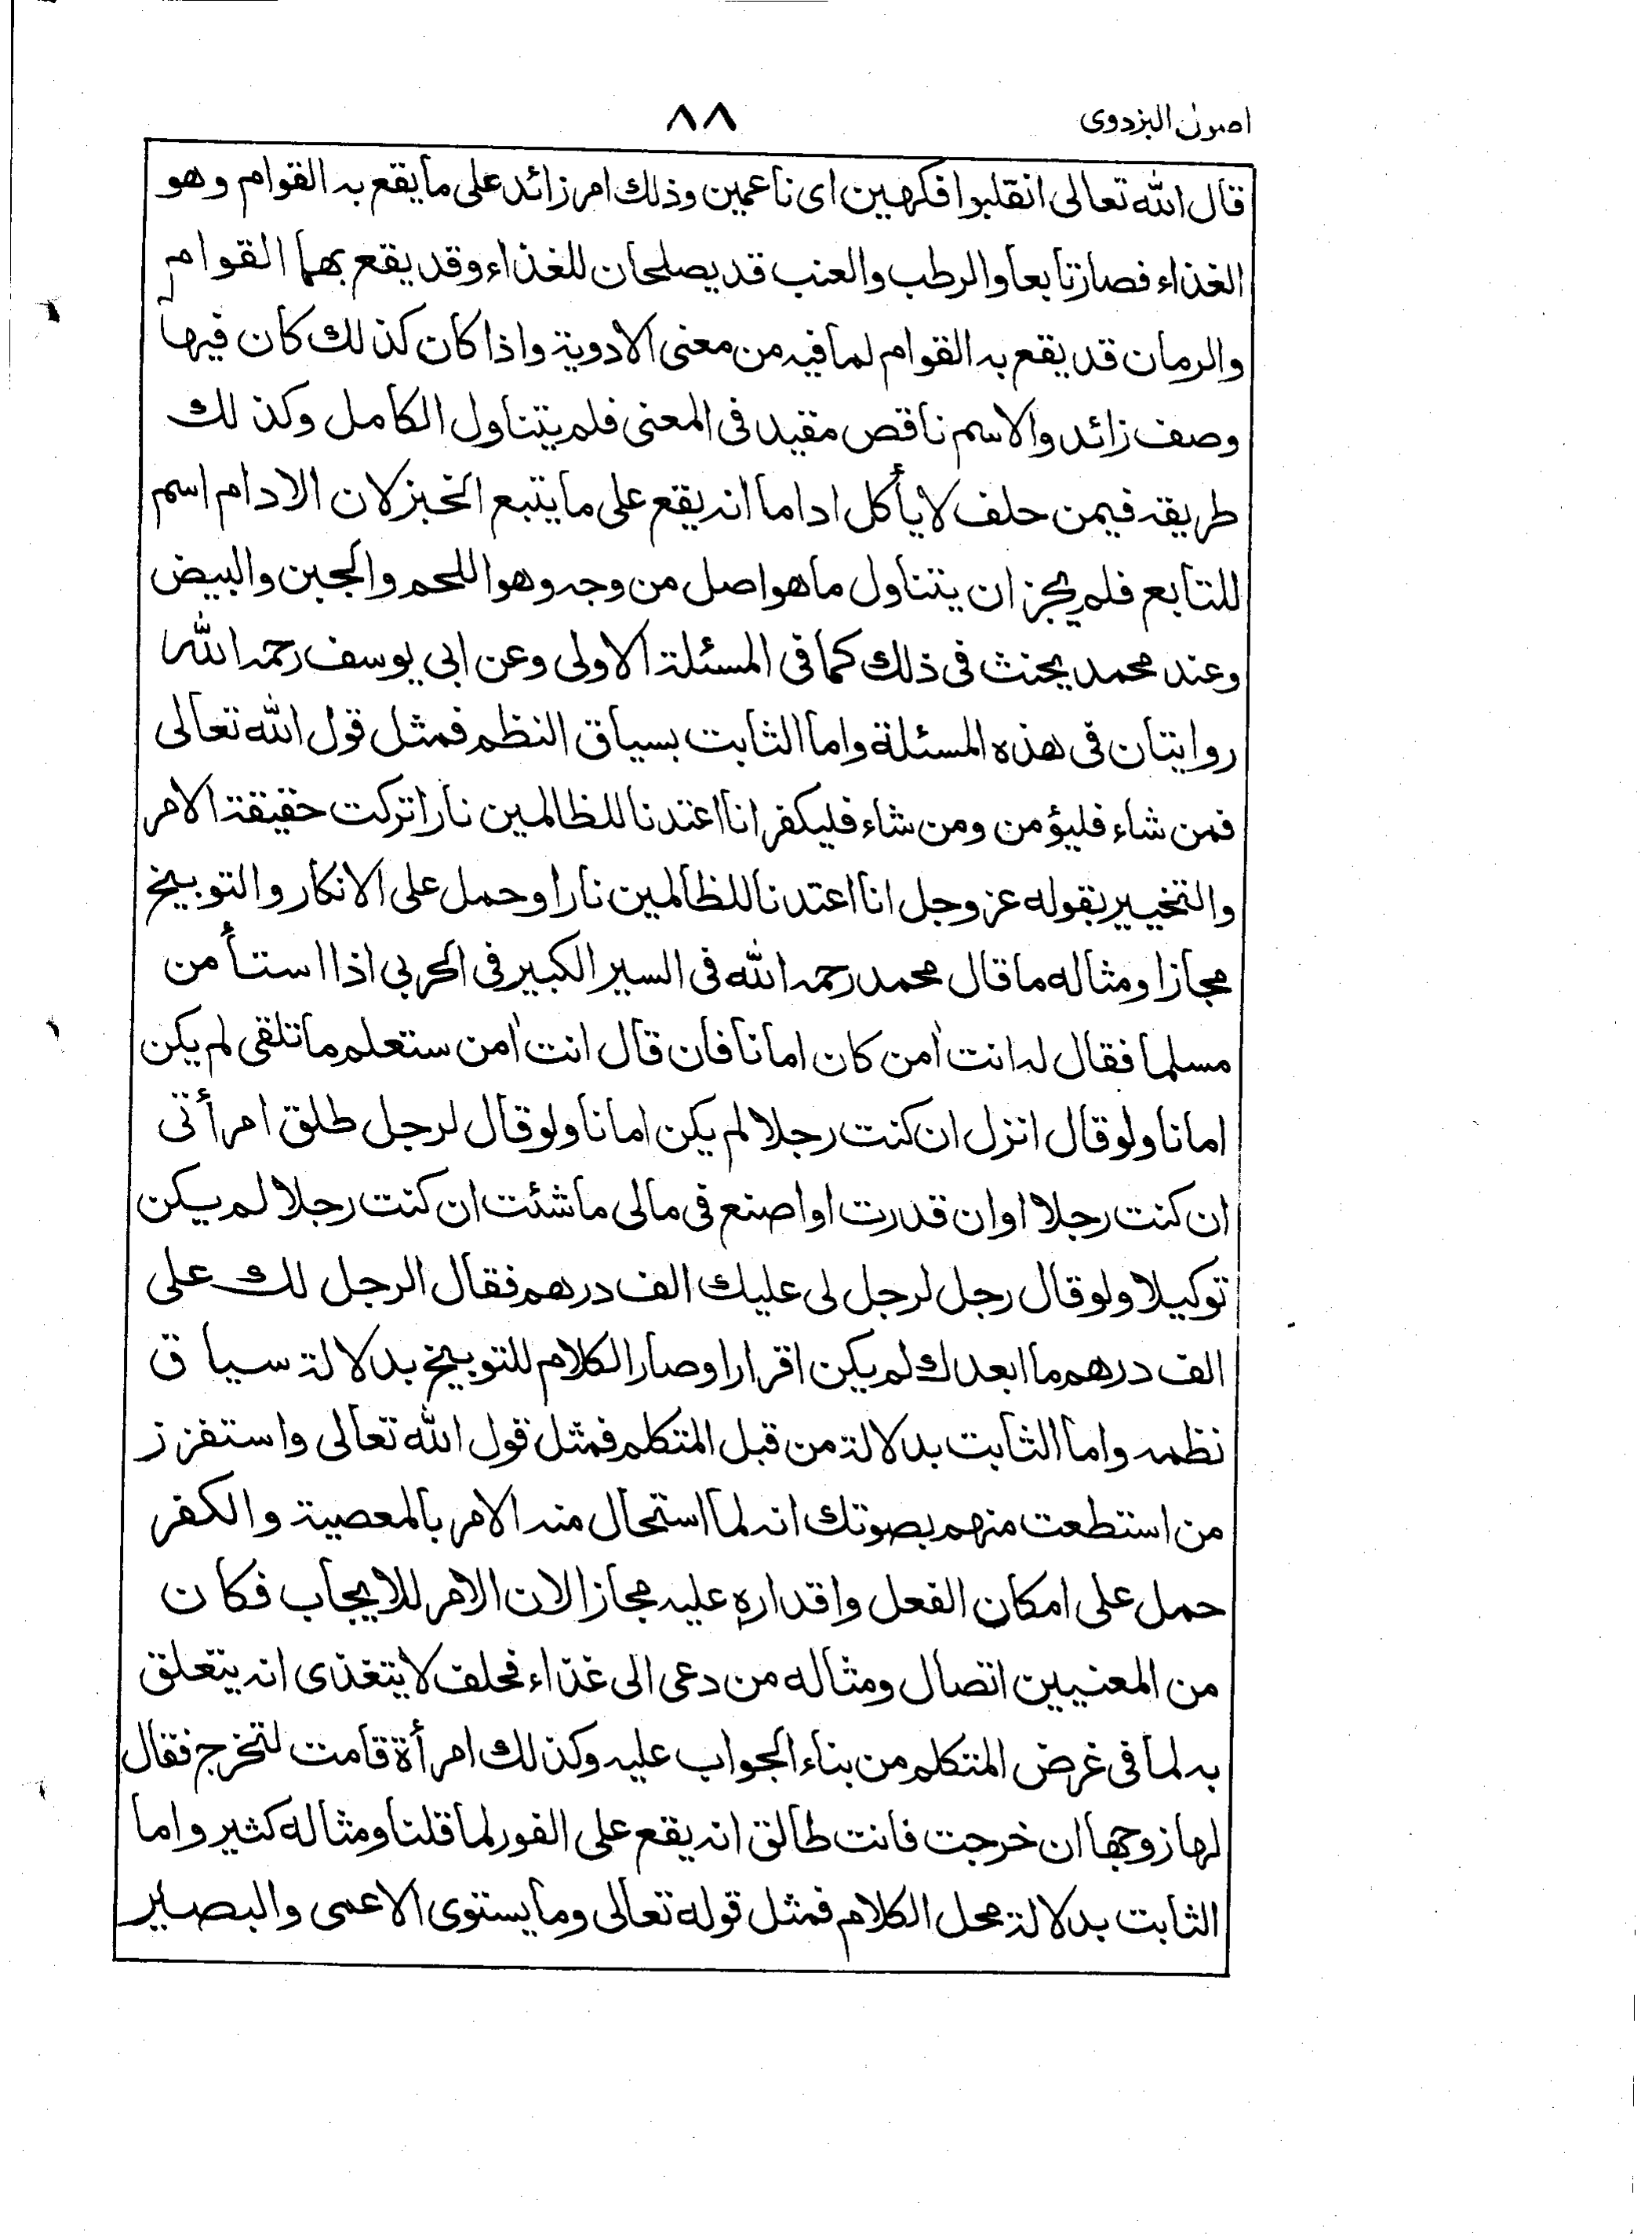 اصول البزدوى
٨٨
قال الله تعالى انقلبوا فكهين اى ناعمين وذلك امر زائد على ما يقع به القوام وهو
الغذاء فصار تابعا والرطب والعنب قد يصلحان للغذاء وقد يقع بهما القوام
والرمان قد يقع به القوام لما فيه من معنى الادوية واذا كان كذلك كان فيها
وصف زائد والاسم ناقص مقيد فى المعنى فلم يتناول الكامل وكذلك
طريقه فيمن حلف لا يأكل اداما انه يقع على ما يتبع الخبز لان الادام اسم
للتابع فلم يجز ان يتناول ما هو اصل من وجه وهو اللحم والجبن والبيض
وعند محمد يحنث فى ذلك كما فى المسئلة الاولى وعن ابى يوسف رحمه الله
روايتان فى هذه المسئلة واما الثابت بسياق النظم فمثل قول الله تعالى
فمن شاء فليؤمن ومن شاء فليكفر انا اعتدنا للظالمين نارا تركت حقيقة الامر
والتخيير بقوله عز وجل انا اعتدنا للظالمين نارا وحمل على الانكار والتوبيخ
مجازا ومثاله ما قال محمد رحمه الله فى السير الكبير فى الحربى اذا استأمن
مسلما فقال له انت اٰمن كان امانا فان قال انت اٰمن ستعلم ما تلقى لم يكن
امانا ولو قال انزل ان كنت رجلا لم يكن امانا ولو قال لرجل طلق امرأتى
ان كنت رجلا او ان قدرت او اصنع فى مالى ما شئت ان كنت رجلا لم يكن
توكيلا ولو قال رجل لرجل لى عليك الف درهم فقال الرجل لك على
الف درهم ما ابعدك لم يكن اقرارا وصار الكلام للتوبيخ بدلالة سياق
نظمه واما الثابت بدلالة من قبل المتكلم فمثل قول الله تعالى واستفزز
من استطعت منهم بصوتك انه لما استحال منه الامر بالمعصية والكفر
حمل على امكان الفعل واقداره عليه مجازا لان الامر للايجاب فكان
من المعنيين اتصال ومثاله من دعى الى غذاء فحلف لا يتغذى انه يتعلق
به لما فى غرض المتكلم من بناء الجواب عليه وكذلك امرأة قامت لتخرج فقال
لها زوجها ان خرجت فانت طالق انه يقع على الفور لما قلنا ومثاله كثير واما
الثابت بدلالة محل الكلام فمثل قوله تعالى وما يستوى الاعمى والبصير